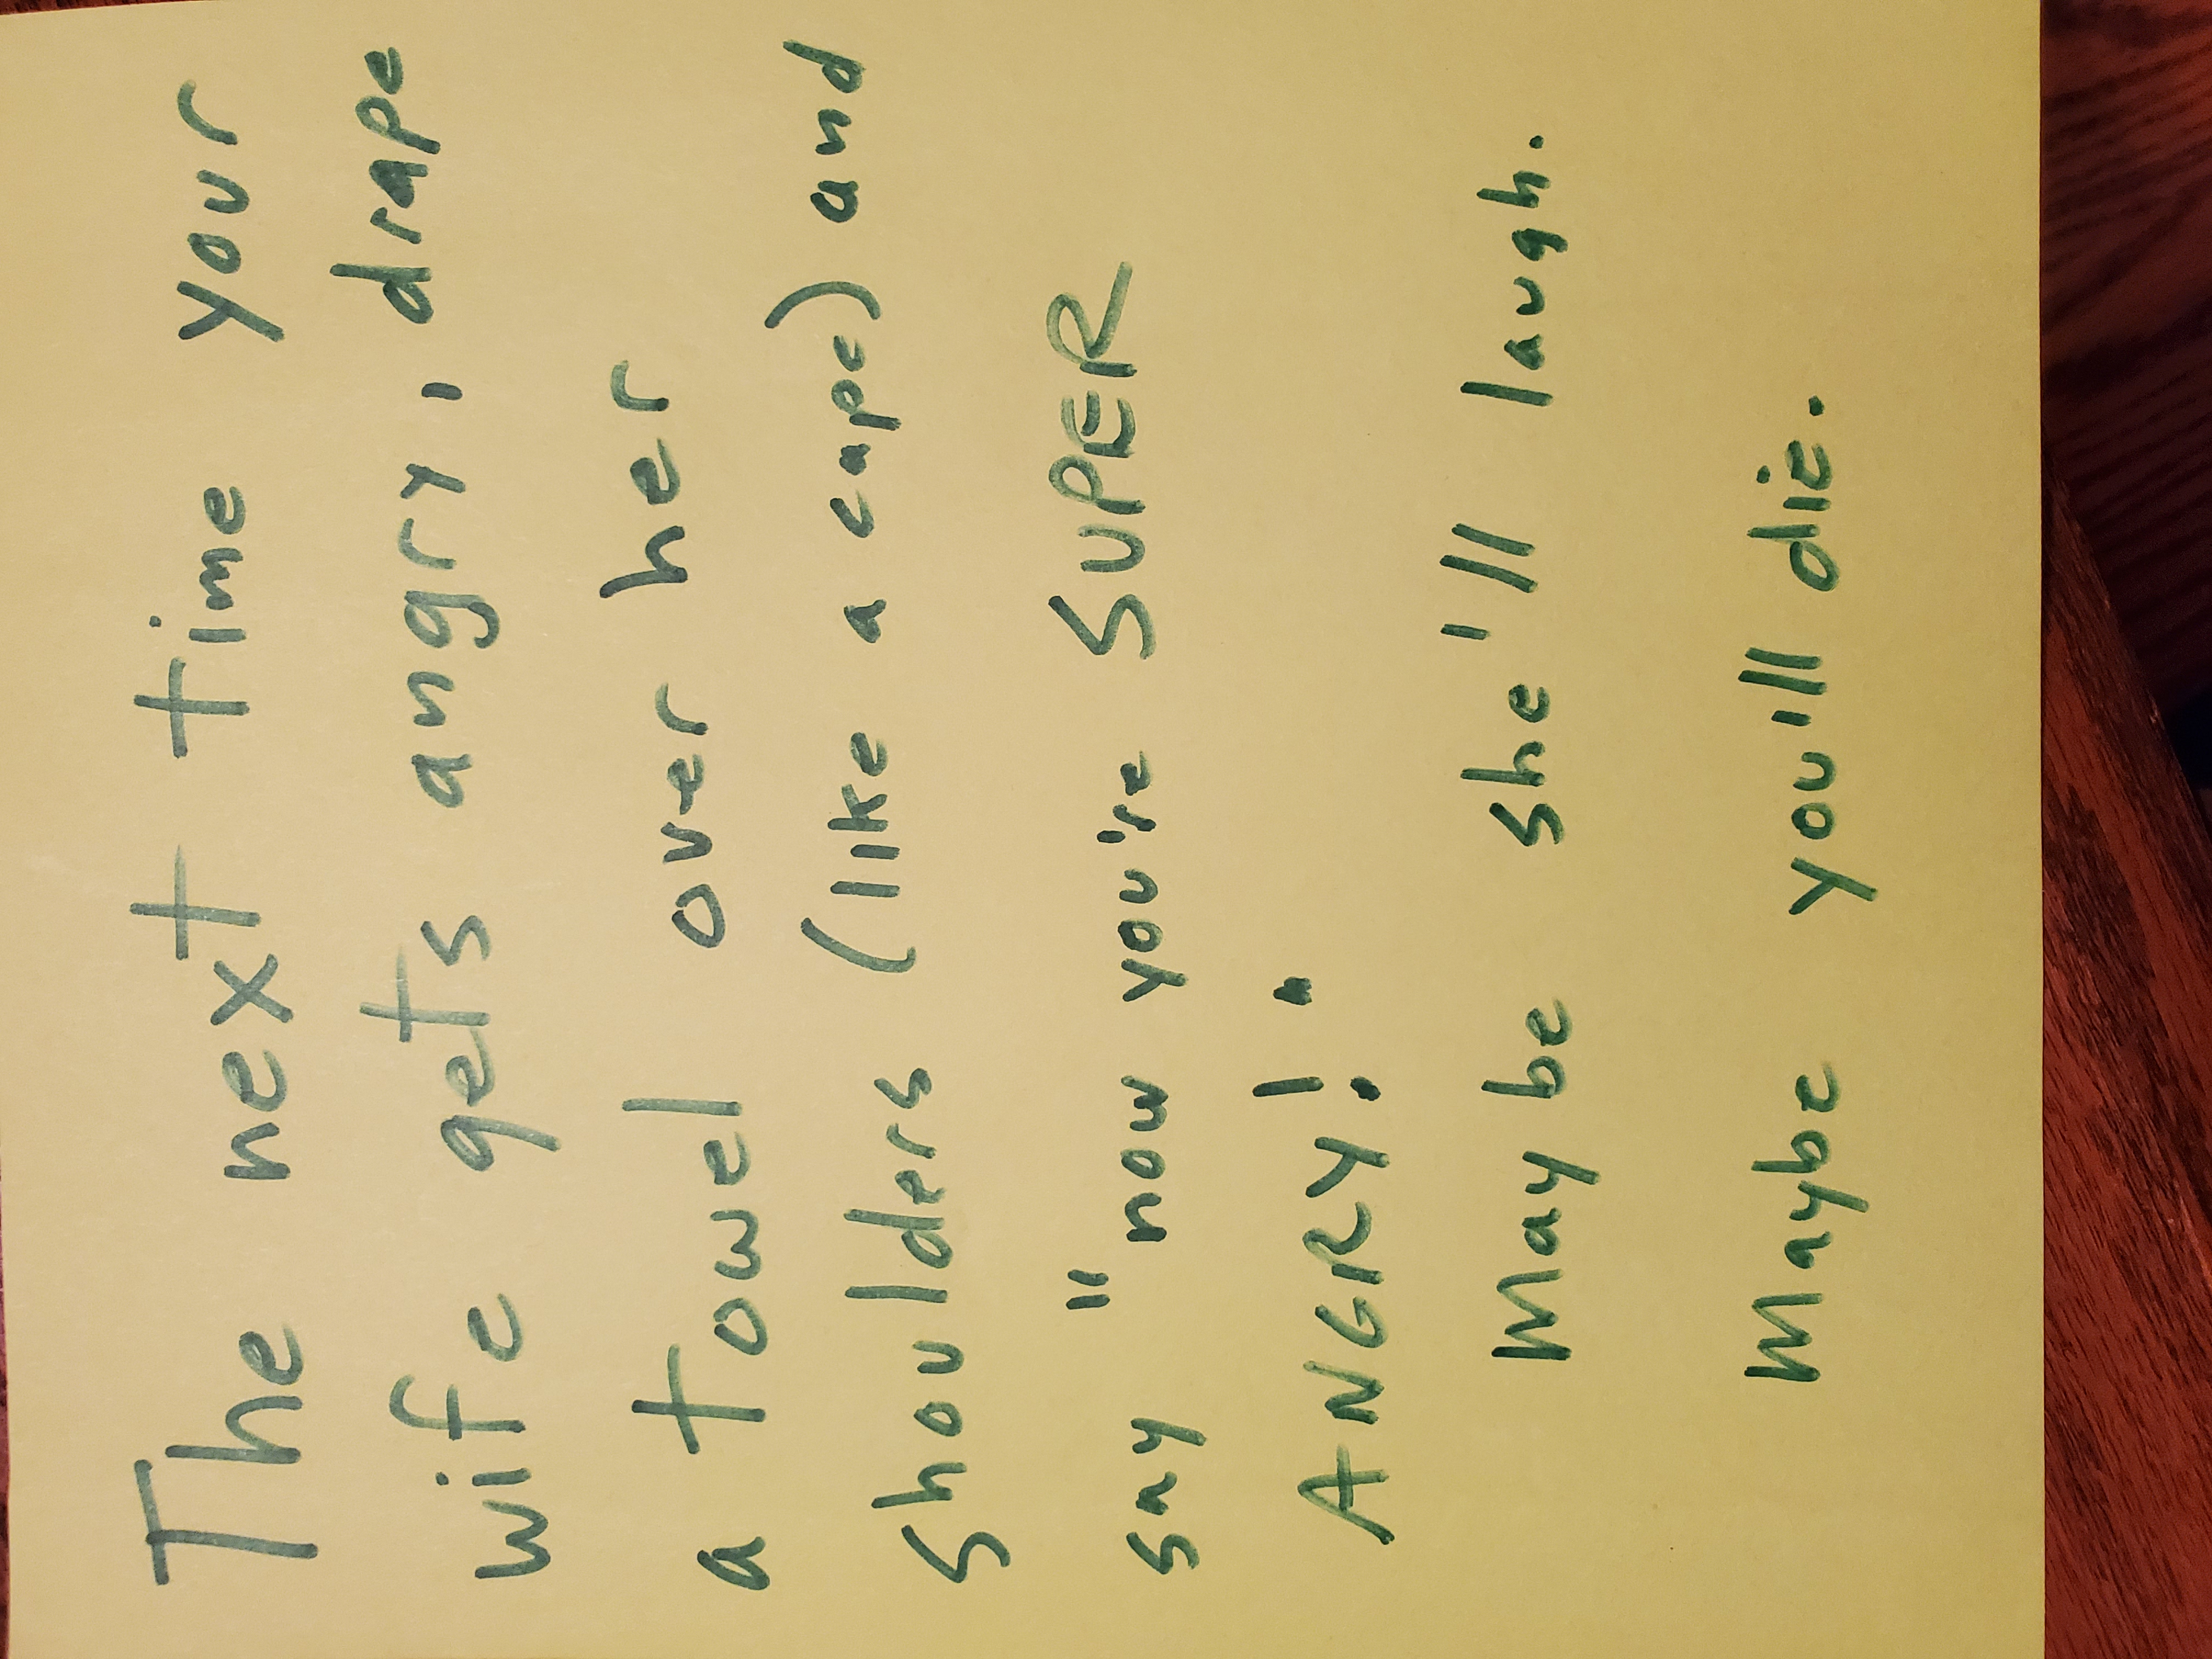 The next time your
wife gets angry, drape
a towel over her
shoulders (like a cape) and
say "now you're SUPER
ANGRY!"
Maybe she'll laugh.
Maybe you'll die.